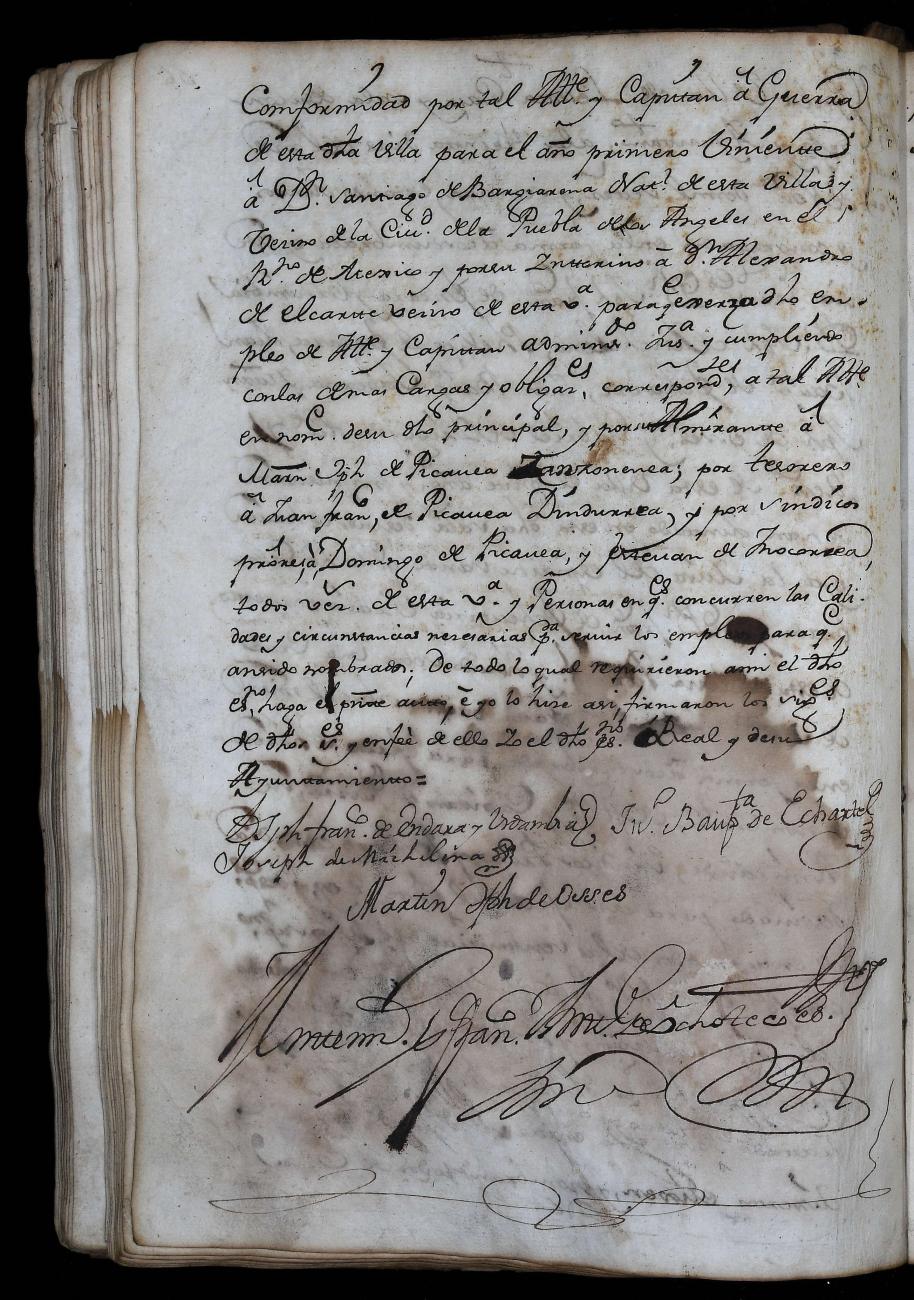 Comformidad por tal Alte. y Capitan à Guerra
de esta dha Villa para el año primero Viniente
à Dn. Santiago de Bargiarena Natl. de esta Villa y
Vecino de la Ciud. de la Puebla de los Angeles en el
Rno. de Mexico y por su Intterino à dn. Alexandro
de elcarte vecino de esta va. para qe exerza dho em-
pleo de Alte. y Capittan adminisdo. Jusa. y cumpliendo
con las demas Cargas y obligacs. correspondtes, a tal Alte
en nome. de su dho principal, y por su Almirante à
Marn Jph de Picavea ; por tesorero
à Juan frano, de Picavea Dindurrea, y por sindicos
prores, à Domingo de Picavea, y Estevan de Inocorrea,
todos vecs. de esta va. y Personas en qes. concurren las Cali-
dades y circunstancias necesarias pa. servir los empleos para qe.
an sido nombrados; De todo lo qual requirieron a mi el dho
esno, haga el pnte auto, è yo lo hize asi, firmaron los
de dhos ses. y en fee de ello Yo el dho esno. Real y de su
Ayuntamiento=
D Jph franco. de Endara y Jun. Baupta de Echarte
Joseph de Michelena
Martin Jph de Osses
Antemi. Fran. Antt. de Echotteco es.